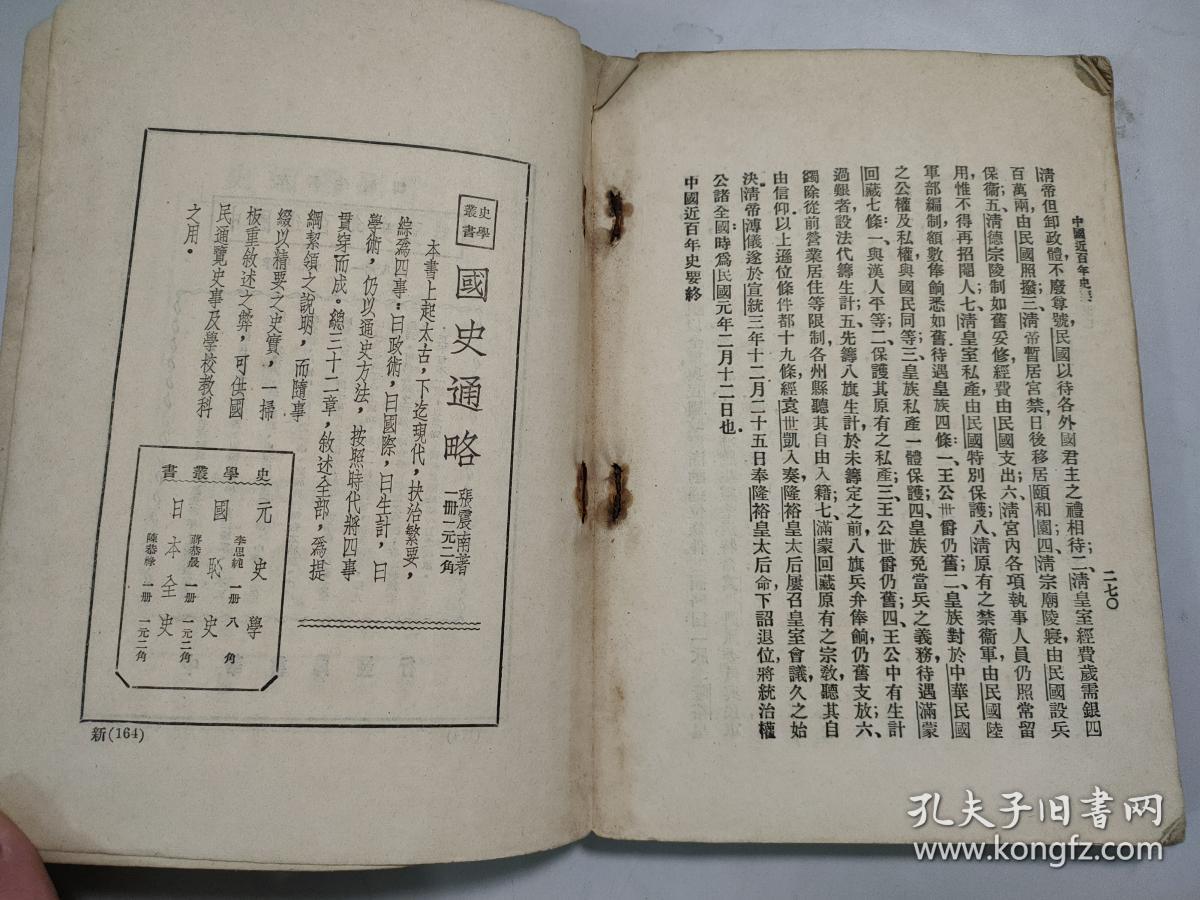 中國近百年史要
二七〇
淸帝但卸政體不廢尊號，民國以待各外國君主之禮相待；二、淸皇室經費歲需銀四
百萬兩，由民國照撥；三、淸帝暫居宮禁，日後移居頤和園；四、淸宗廟陵寢，由民國設兵
保衞；五、淸德宗陵制如舊妥修，經費由民國支出；六、淸宮內各項執事人員仍照常留
用，惟不得再招閹人；七、淸皇室私產由民國特別保護；八、淸原有之禁衞軍由民國陸
軍部編制，額數俸餉悉如舊。待遇皇族四條：一、王公世爵仍舊；二、皇族對於中華民國
之公權及私權與國民同等；三、皇族私產一體保護；四、皇族免當兵之義務。待遇滿蒙
回藏七條：一、與漢人平等；二、保護其原有之私產；三、王公世爵仍舊；四、王公中有生計
過艱者設法代籌生計；五、先籌八旗生計，於未籌定之前，八旗兵弁俸餉仍舊支放；六、
蠲除從前營業居住等限制，各州縣聽其自由入籍；七、滿蒙回藏原有之宗敎，聽其自
由信仰。以上遜位條件都十九條，經袁世凱入奏，隆裕皇太后屢召皇室會議，久之始
決。淸帝溥儀遂於宣統三年十二月二十五日奉隆裕皇太后命下詔退位，將統治權
公諸全國；時爲民國元年二月十二日也。
中國近百年史要終
史學叢書
國史通略
張震南著
一冊一元二角
本書上起太古，下迄現代，抉治繁要，
綜爲四事：曰政術，曰國際，曰生計，曰
學術，仍以通史方法，按照時代將四事
貫穿而成。總三十二章，敘述全部，爲提
綱絜領之說明，而隨事
綴以精要之史實，一掃
板重敘述之弊，可供國
民通覽史事及學校教科
之用。
史學叢書
元史學
李思純 一冊 八角
國恥史
蔣恭晟 一冊 一元二角
日本全史
陳恭祿 一冊 一元二角
新(164)
孔夫子旧书网
www.kongfz.com